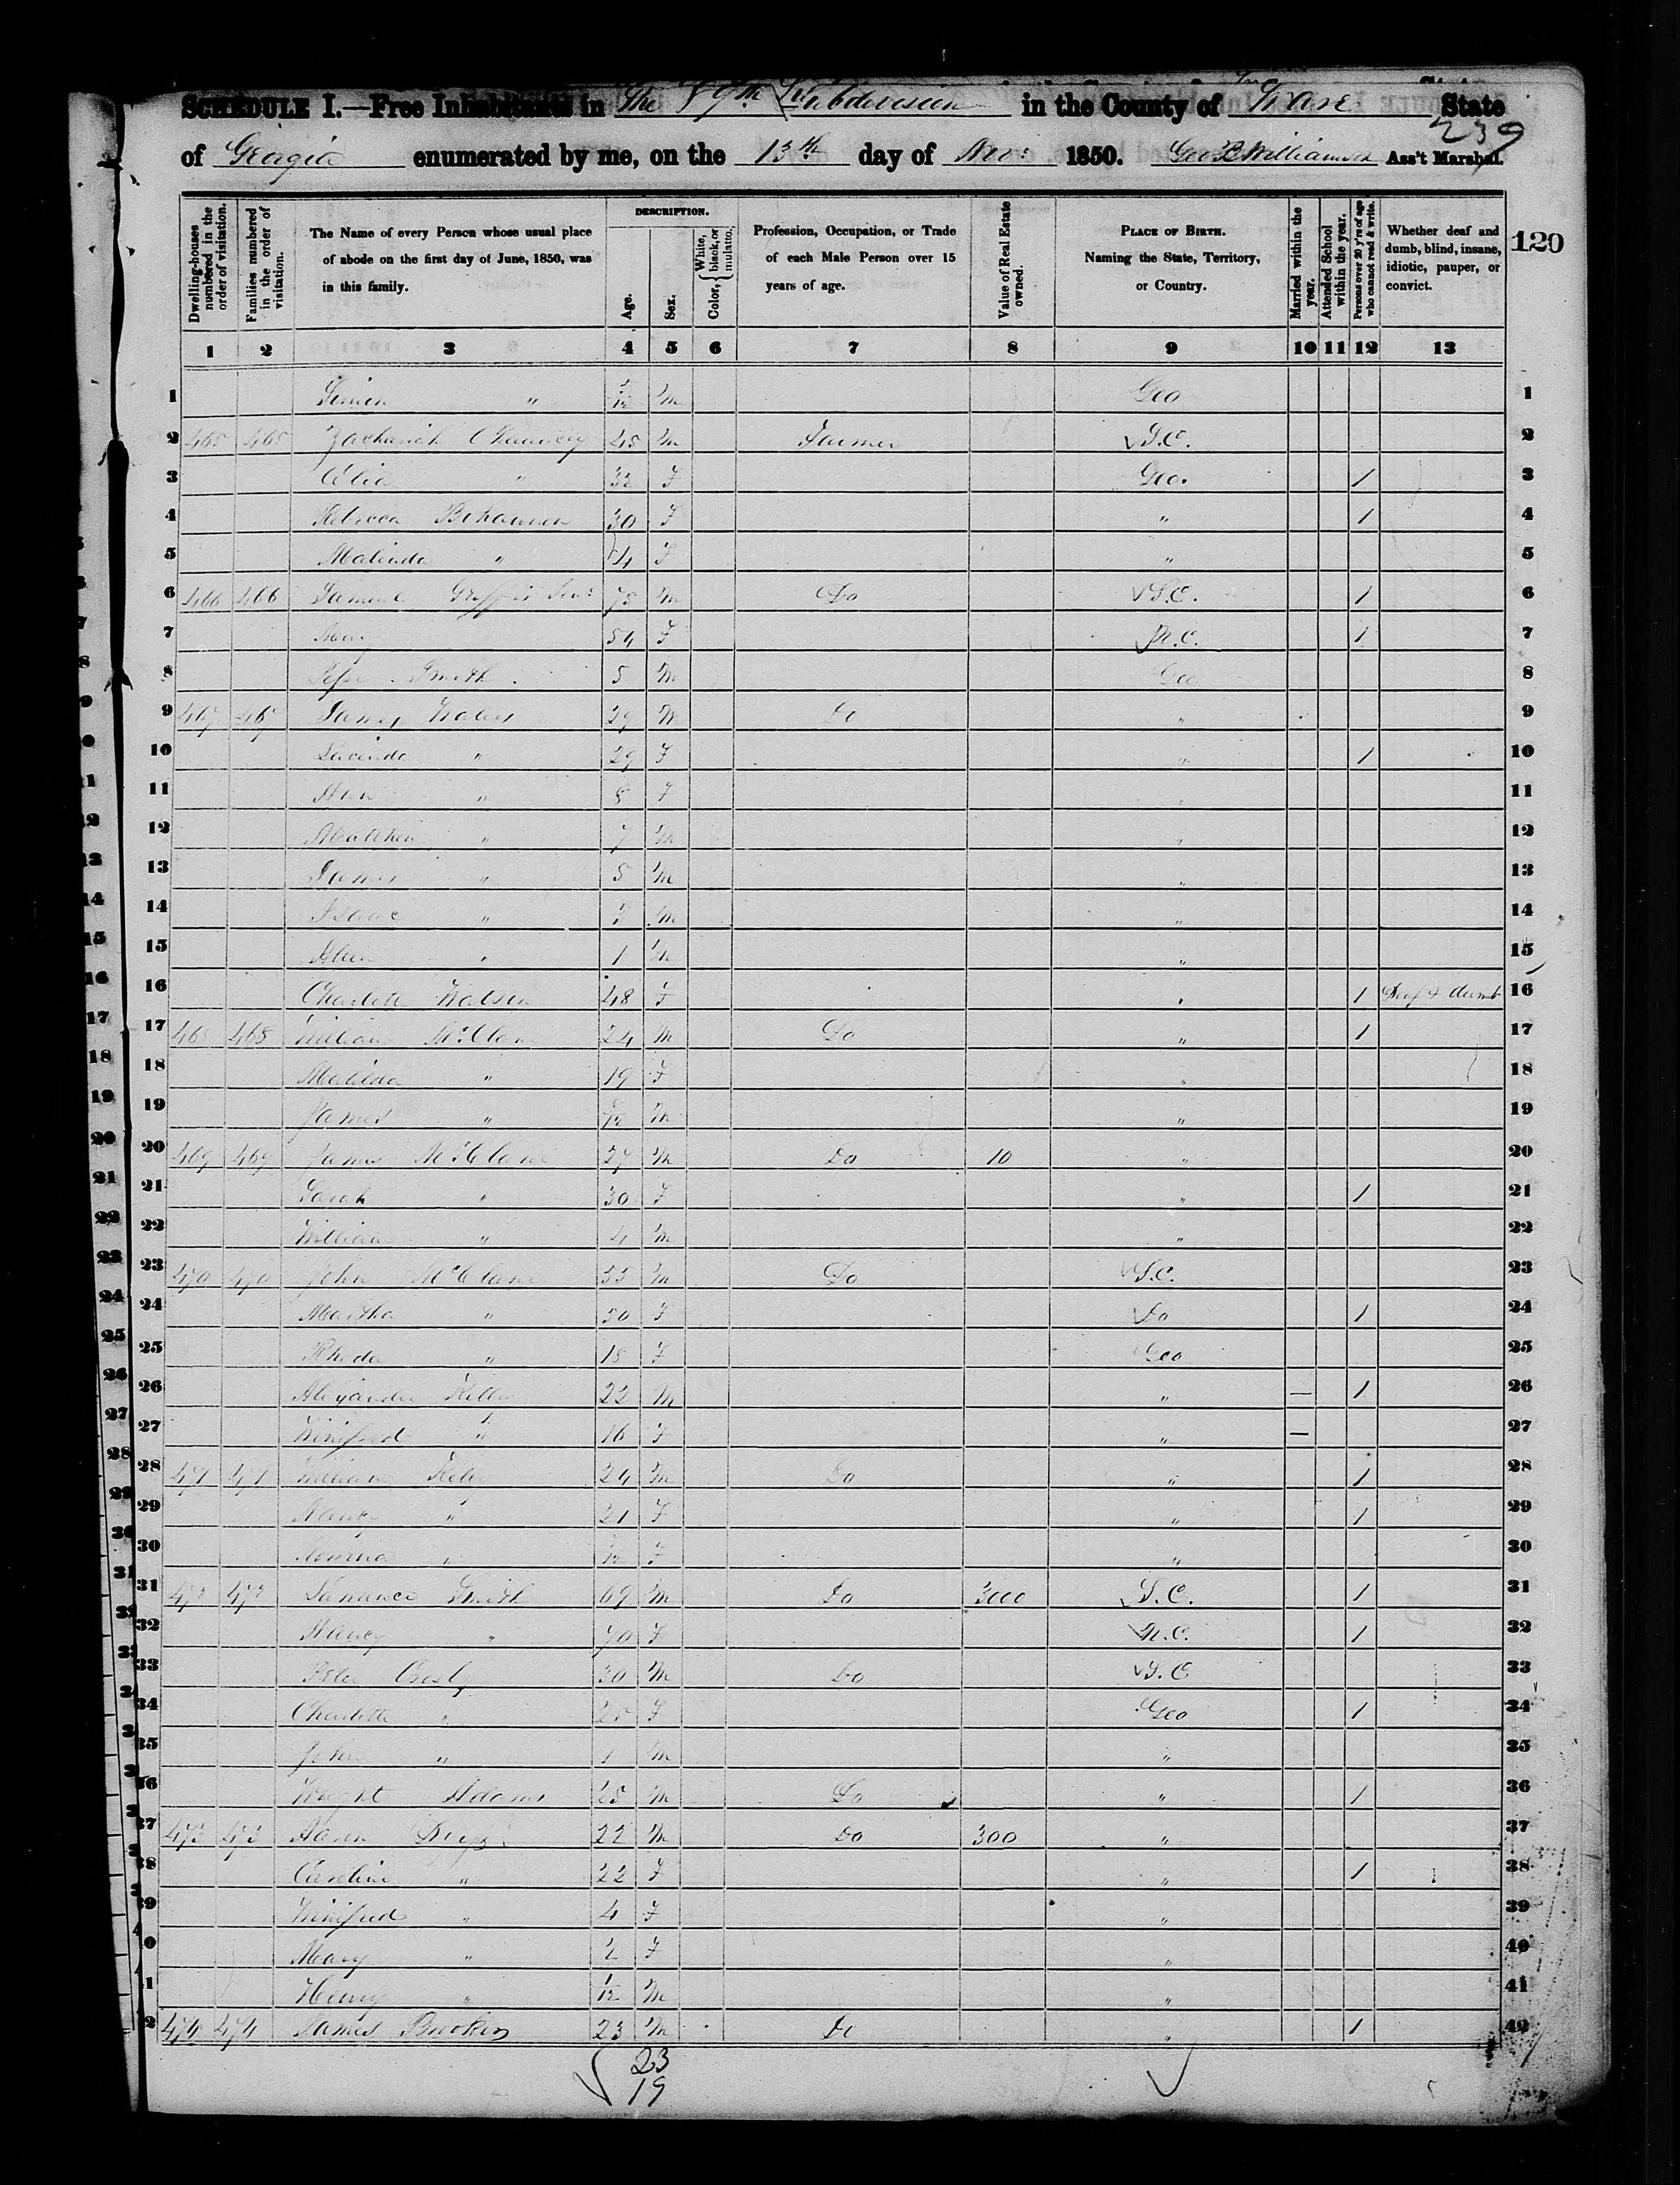 SCHEDULE I.—Free Inhabitants in The 89th Subdivision in the County of Ware State
239
of Georgia enumerated by me, on the 13th day of Nov: 1850. Geo B Williamson Ass't Marshal.
120
Dwelling-houses numbered in the order of visitation.
Families numbered in the order of visitation.
The Name of every Person whose usual place of abode on the first day of June, 1850, was in this family.
DESCRIPTION.
Age.
Sex.
Color, { White, black, or mulatto.
Profession, Occupation, or Trade of each Male Person over 15 years of age.
Value of Real Estate owned.
PLACE OF BIRTH. Naming the State, Territory, or Country.
Married within the year.
Attended School within the year.
Persons over 20 y'rs of age who cannot read & write.
Whether deaf and dumb, blind, insane, idiotic, pauper, or convict.
1 2 3 4 5 6 7 8 9 10 11 12 13
1 " M Geo 1
2 465 465 Zachariah Chauncey 45 M Farmer S.C. 2
3 Celia " 32 F Geo. / 3
4 Rebecca 30 F " / 4
5 Malinda " 4 F " 5
6 466 466 Samuel Griffis Senr 75 M Do S.C. / 6
7 Mary 54 F N.C. / 7
8 Smith 5 M Geo 8
9 467 467 James 29 M Do " 9
10 Lucinda " 29 F " / 10
11 Ann " 8 F " 11
12 Matthew " 7 M " 12
13 James " 5 M " 13
14 Isaac " M " 14
15 Allen " 1 M " 15
16 Charlotte Watson 48 F " / Deaf & dumb 16
17 468 468 William McClane 24 M Do " / 17
18 Matilda " 19 F " 18
19 James " M " 19
20 469 469 James McClane 27 M Do 10 " 20
21 Sarah " 30 F " / 21
22 William " 4 M " 22
23 470 470 John McClane 55 M Do S.C. 23
24 Martha " 50 F Do / 24
25 Rhoda " 18 F Geo 25
26 Alexander Kelly 22 M " — / 26
27 Winifred " 16 F " — 27
28 471 471 William Kelly 24 M Do " / 28
29 Nancy " 21 F " / 29
30 " F " 30
31 472 472 Smith 69 M Do 3000 S.C. / 31
32 Nancy " 70 F N.C. / 32
33 Peter Crosby 30 M Do S.C 33
34 Charlotte " 25 F Geo / 34
35 John " 1 M " 35
36 Wright Adams 25 M Do " / 36
37 473 473 Aaron 22 M Do 300 " 37
38 Caroline " 22 F " / 38
39 Winifred " 4 F " 39
40 Mary " 2 F " 40
41 Henry " 1/12 M " 41
42 474 474 James Brooker 23 M Do " / 42
23
19